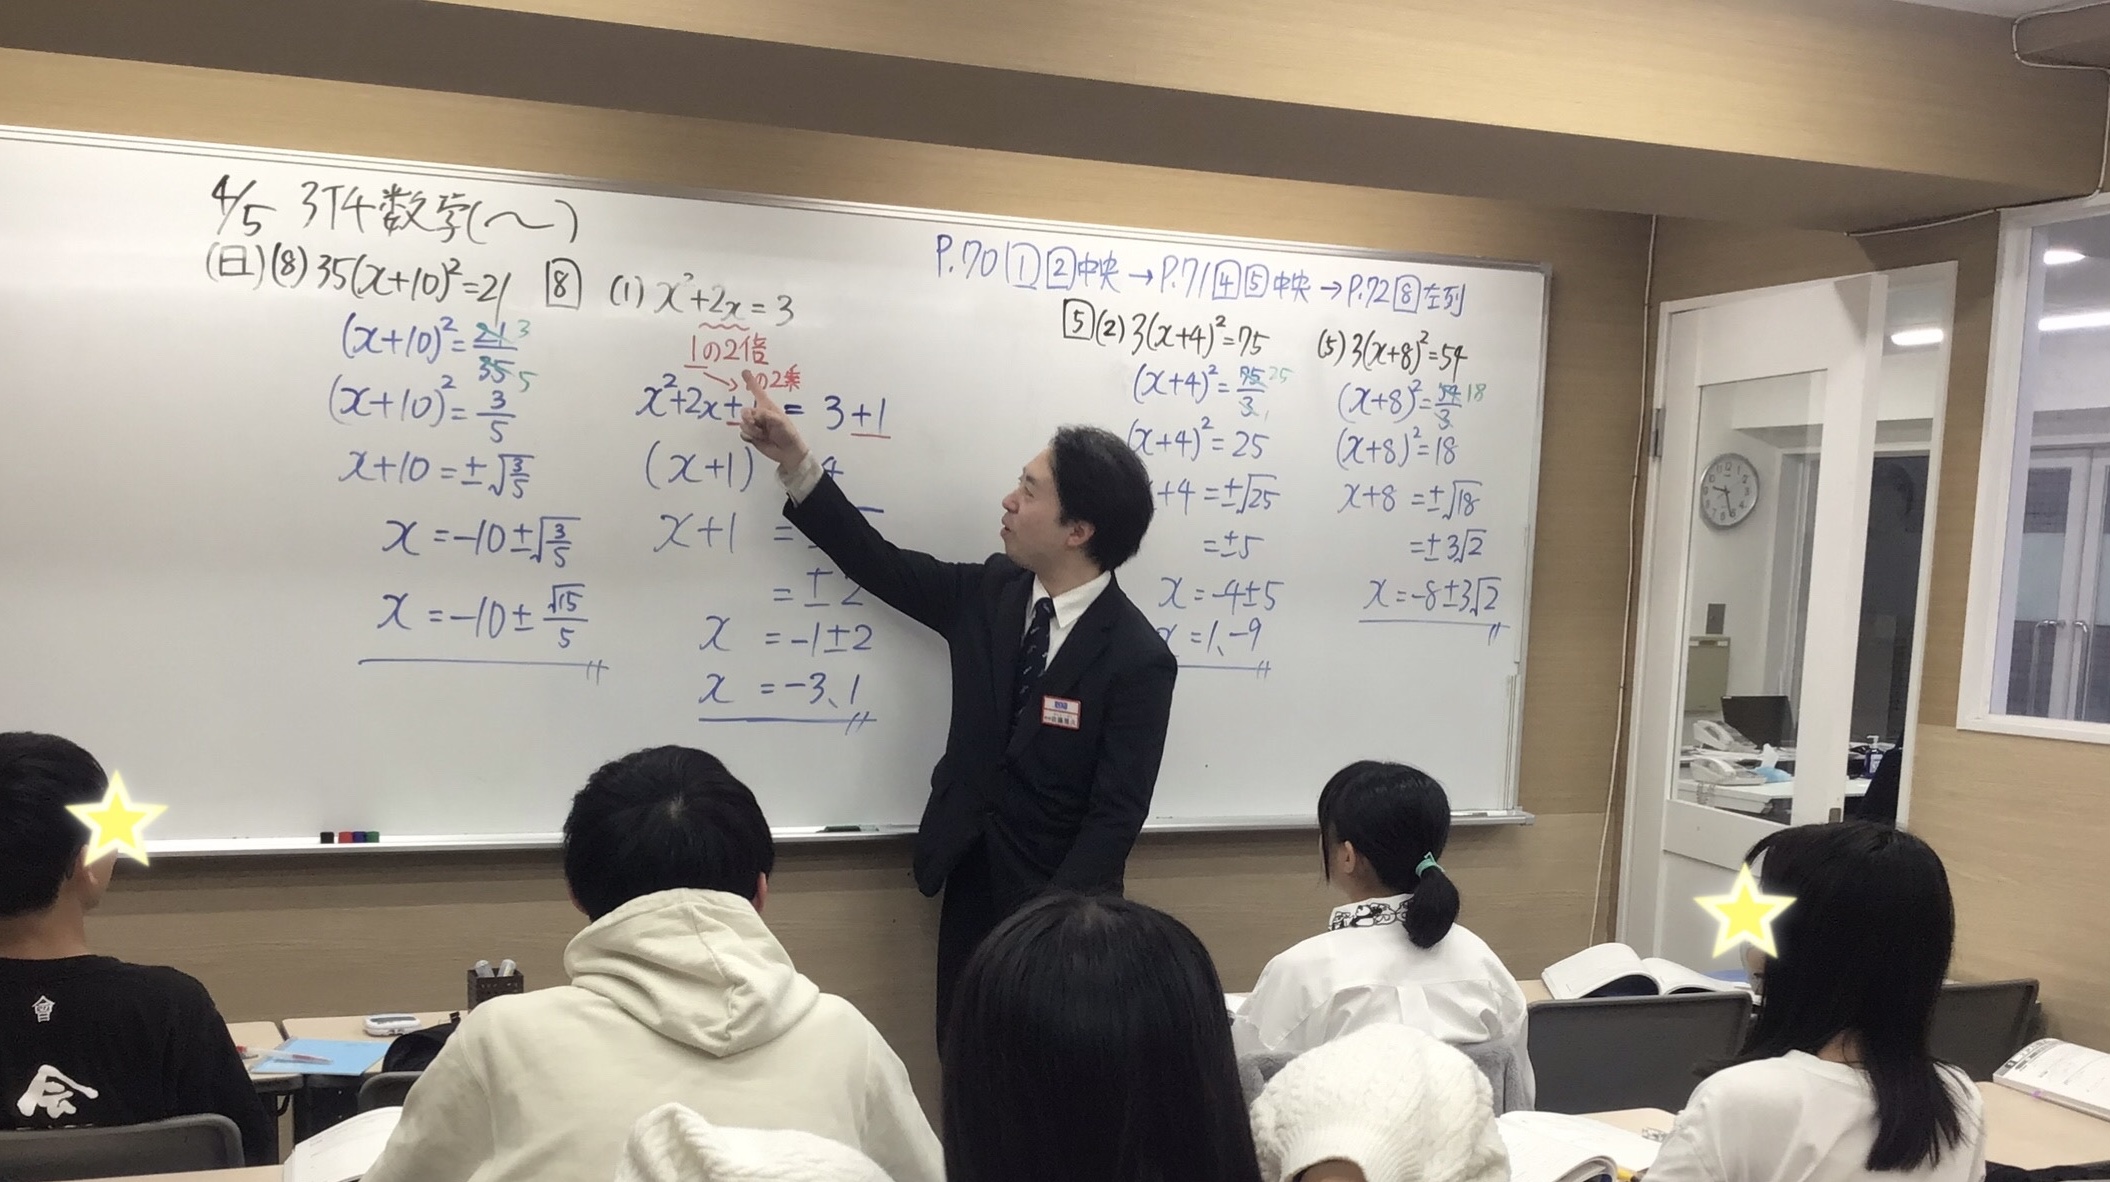 4/5 3T4数学(〜)
(日)(8) 35(x+10)²=21
(x+10)²=21/35 3 5
(x+10)²=3/5
x+10=±√3/5
x=-10±√3/5
x=-10±√15/5
8 (1) x²+2x=3
1の2倍
の2乗
x²+2x+ = 3+1
(x+1) 4
x+1 =
=±2
x =-1±2
x =-3、1
P.70 1 2 中央→P.71 4 5 中央→P.72 8 左列
5 (2) 3(x+4)²=75
(x+4)²=75/3 25 1
(x+4)²=25
+4=±√25
=±5
x=-4±5
x=1、-9
(5) 3(x+8)²=54
(x+8)²=54/3 18
(x+8)²=18
x+8=±√18
=±3√2
x=-8±3√2
會